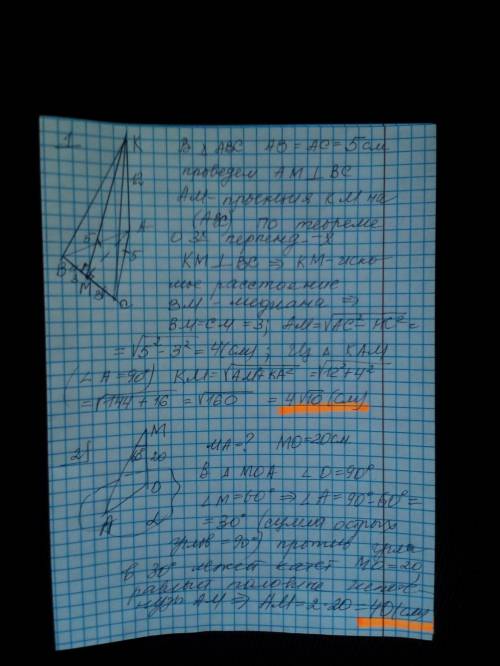 1
K
12
A
5
5
B
3
M
3
C
В △ ABC AB = AC = 5 см
проведем AM ⊥ BC
AM - проекция KM на
(ABC) по теореме
о 3х перпенд-х
KM ⊥ BC ⇒ KM - иско-
мое расстояние
BM - медиана ⇒
BM = CM = 3; AM = √AC² - MC² =
= √5² - 3² = 4 (см); Из △ KAM
(∠A = 90°) KM = √AM² + KA² = √12² + 4²
= √144 + 16 = √160 = 4√10 (см)
2)
M
60
20
O
A
α
MA = ? MO = 20 см
В △ MOA ∠O = 90°
∠M = 60° ⇒ ∠A = 90° - 60° =
= 30° (сумма острых
углов = 90°) против угла
в 30° лежит катет MO = 20,
равный половине гипоте-
нузы AM ⇒ AM = 2 · 20 = 40 (см)